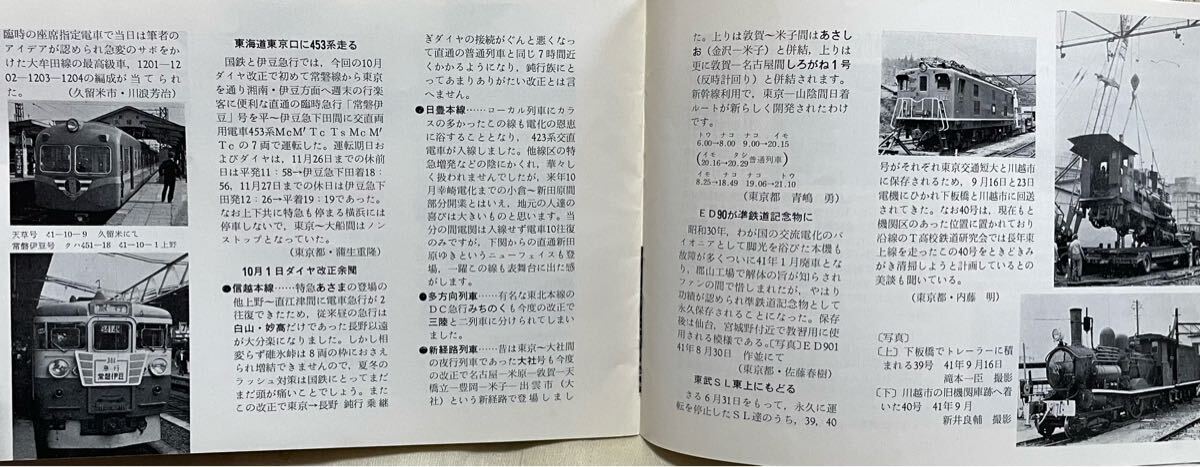 臨時の座席指定電車で当日は筆者の
アイデアが認められ急変のサボをか
けた大牟田線の最高級車，1201―12
02―1203―1204の編成が当てられ
た。　　　（久留米市・川浪芳治）
天草号　41-10-9　久留米にて
常磐伊豆号　クハ451-18　41-10-1上野
急行
常磐伊豆
東海道東京口に453系走る
国鉄と伊豆急行では，今回の10月
ダイヤ改正で初めて常磐線から東京
を通り湘南・伊豆方面へ週末の行楽
客に便利な直通の臨時急行「常磐伊
豆」号を平～伊豆急下田間に交直両
用電車453系McM′TcTsMcM′
Tcの７両で運転した。運転期日お
よびダイヤは，11月26日までの休前
日は平発11：58→伊豆急下田着18：
56，11月27日までの休日は伊豆急下
田発12：26→平着19：19であった。
なお上下共に特急も停まる横浜には
停車しないで，東京～大船間はノン
ストップとなっていた。
（東京都・蒲生重隆）
10月１日ダイヤ改正余聞
●信越本線……特急あさまの登場の
他上野～直江津間に電車急行が２
往復できたため，従来昼の急行は
白山・妙高だけであった長野以遠
が大分楽になりました。しかし相
変らず碓氷峠は８両の枠におさえ
られ増結できませんので，夏冬の
ラッシュ対策は国鉄にとってまだ
まだ頭が痛いことでしょう。また
この改正で東京→長野 鈍行 乗継
ぎダイヤの接続がぐんと悪くなっ
て直通の普通列車と同じ７時間近
くかかるようになり，鈍行族にと
ってあまりありがたい改正とは言
えません。
●日豊本線……ローカル列車にカラ
スの多かったこの線も電化の恩恵
に浴することとなり， 423系交直
電車が入線しました。他線区の特
急増発などの陰にかくれ，華々し
く扱われていませんが，来年10月
幸崎電化までの小倉～新田原間
部分開業とはいえ，地元の人達の
喜びは大きいものと思います。当
分の間電関は入線せず電車10往復
のみですが，下関からの直通新田
原ゆきというニューフェイスも登
場，一躍この線も表舞台に出た感
がします。
●多方向列車……有名な東北本線の
ＤＣ急行みちのくも今度の改正で
三陸と二列車に分けられてしまい
ました。
●新経路列車……昔は東京～大社間
の夜行列車であった大社号も今度
の改正で名古屋―米原―敦賀―天
橋立―豊岡―米子―出雲市（大
社）という新経路で登場しまし
た。上りは敦賀～米子間はあさし
お（金沢―米子）と併結，上りは
更に敦賀―名古屋間しろがね１号
（反時計回り）と併結されます。
新幹線利用で，東京―山陰間日着
ルートが新らしく開発されたわけ
です。
トウ　ナコ　ナコ　イモ
6.00→8.00　9.00→20.15
（イモ　　クシ
20.16→20.29 普通列車）
イモ　ナコ　ナコ　トウ
8.25→18.49　19.06→21.10
（東京都　青嶋　勇）
ＥＤ90が準鉄道記念物に
昭和30年，わが国の交流電化のパ
イオニアとして脚光を浴びた本機も
故障が多くついに41年１月廃車とな
り，郡山工場で解体の旨が知らされ
ファンの間で惜しまれたが，やはり
功績が認められ準鉄道記念物として
永久保存されることになった。保存
後は仙台，宮城野付近で教習用に使
用される模様である。〔写真〕ＥＤ901
41年８月30日　作並にて
（東京都・佐藤春樹）
東武ＳＬ東上にもどる
さる６月31日をもって，永久に運
転を停止したＳＬ達のうち，39，40
号がそれぞれ東京交通短大と川越市
に保存されるため，９月16日と23日
電機にひかれ下板橋と川越市に回送
されてきた。なお40号は，現在もと
機関区のあった位置に置かれており
沿線のＴ高校鉄道研究会では長年東
上線を走ったこの40号をときどきみ
がき清掃しようと計画しているとの
美談も聞いている。
（東京都・内藤　明）
〔写真〕
〔上〕下板橋でトレーラーに積
まれる39号　41年９月16日
滝本一臣　撮影
〔下〕川越市の旧機関庫跡へ着
いた40号　41年９月
新井良輔　撮影